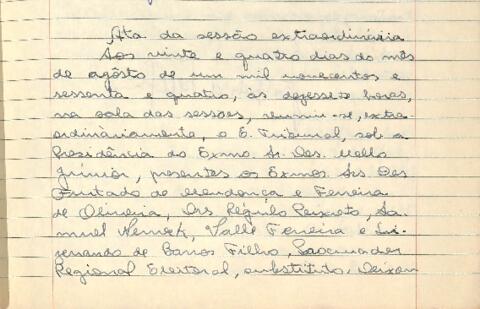 Ata da sessão extraordinária
Aos vinte e quatro dias do mês
de agôsto de um mil novecentos e
sessenta e quatro, às dezessete horas,
na sala das sessões, reuniu-se, extra-
ordinàriamente, o E. Tribunal, sob a
Presidência do Exmo. Sr. Des. Mello
Júnior, presentes os Exmos. Srs. Des
Furtado de Mendonça e Ferreira
de Oliveira, Drs. Régulo Peixoto, Sa-
muel Werneck, Valle Ferreira e
senando de Barros Filho, Procurador
Regional Eleitoral, substituto. Deixou